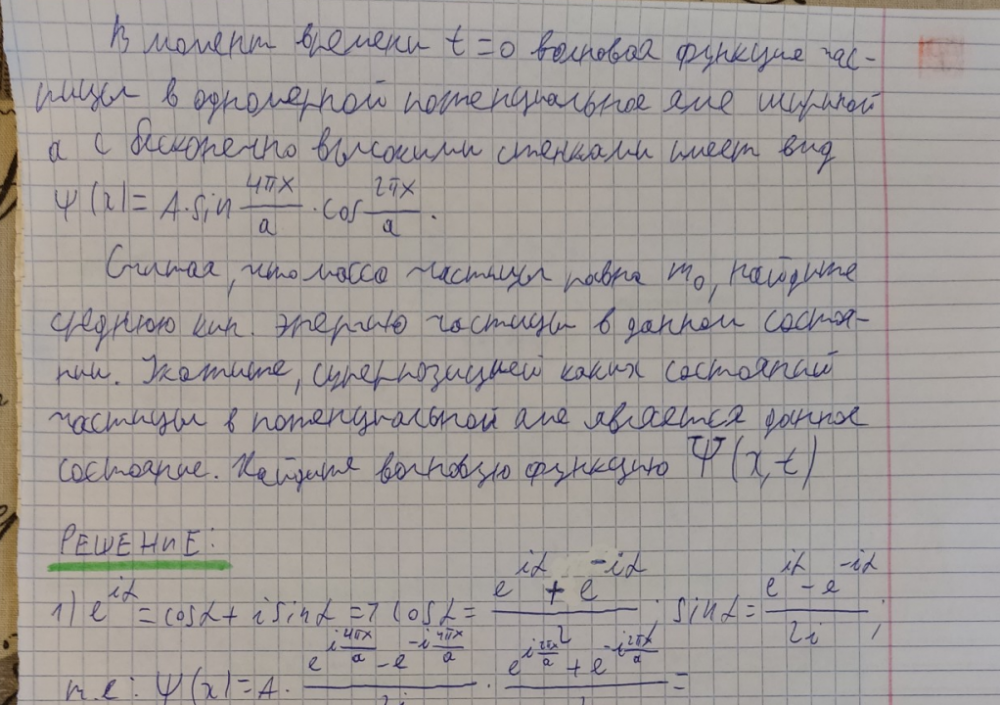 В момент времени t=0 волновая функция час-
тицы в одномерной потенциальной яме шириной
a с бесконечно высокими стенками имеет вид
ψ(x)= A·sin 4πx/a · cos 2πx/a.
Считая, что масса частицы равна m₀, найдите
среднюю кин. энергию частицы в данном состоя-
нии. Укажите, суперпозицией каких состояний
частицы в потенциальной яме является данное
состояние. Найдите волновую функцию Ψ(x,t)
РЕШЕНИЕ:
1) e^{iα} = cosα + i sinα => cosα = (e^{iα} + e^{-iα})/2; sinα = (e^{iα} - e^{-iα})/2i;
т.е.: ψ(x)=A· (e^{i4πx/a} - e^{-i4πx/a})/2i · (e^{i2πx/a} + e^{-i2πx/a})/2 =